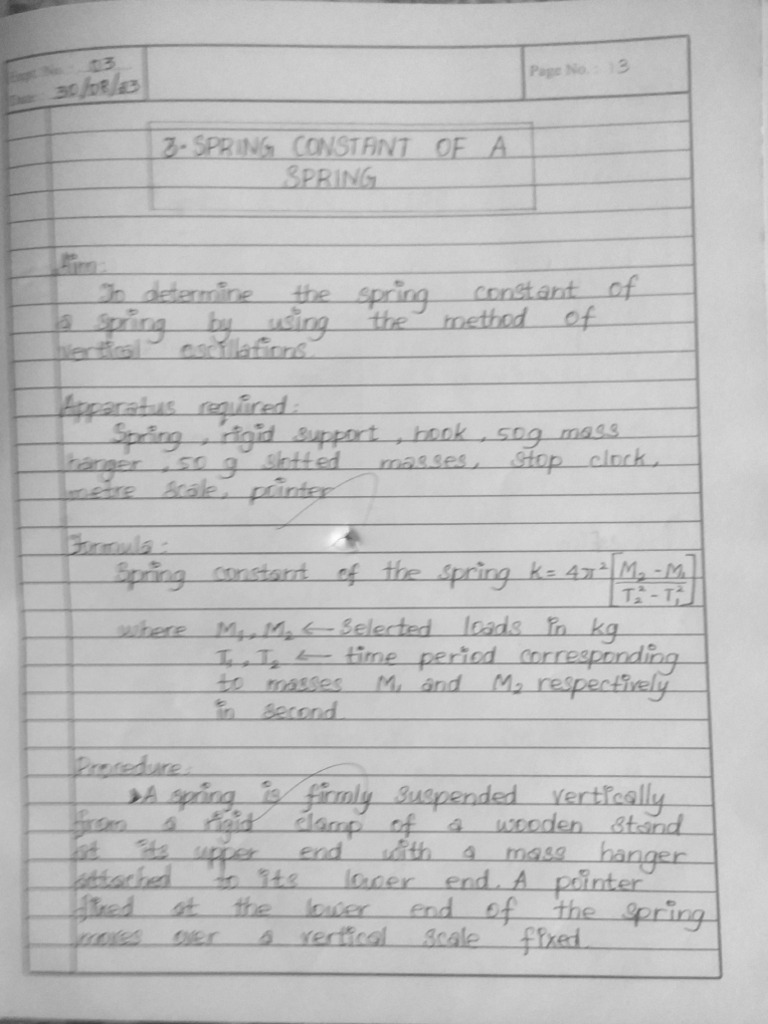 Expt. No. : 03
Date : 30/08/23
Page No. : 13
3- SPRING CONSTANT OF A
SPRING
Aim:
To determine the spring constant of
a spring by using the method of
vertical oscillations.
Apparatus required:
Spring, rigid support, hook, 50g mass
hanger, 50 g slotted masses, stop clock,
metre scale, pointer
Formula:
Spring constant of the spring k = 4π² [M₂ - M₁ / T₂² - T₁²]
where M₁, M₂ ← Selected loads in kg
T₁, T₂ ← time period corresponding
to masses M₁ and M₂ respectively
in second.
Procedure:
➤A spring is firmly suspended vertically
from a rigid clamp of a wooden stand
at its upper end with a mass hanger
attached to its lower end. A pointer
fixed at the lower end of the spring
moves over a vertical scale fixed.